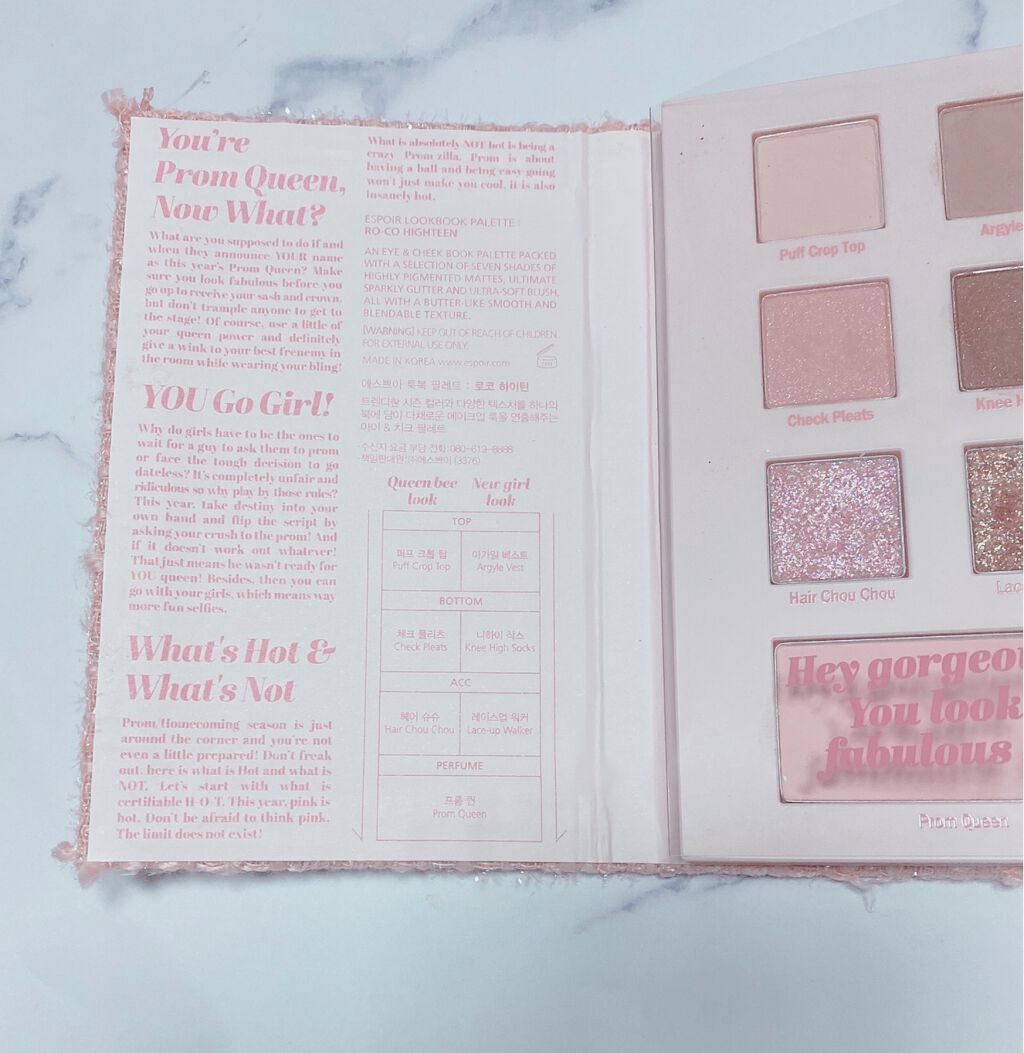 You're
Prom Queen,
Now What?
What are you supposed to do if and
when they announce YOUR name
as this year's Prom Queen? Make
sure you look fabulous before you
go up to receive your sash and crown,
but don't trample anyone to get to
the stage! Of course, use a little of
your queen power and definitely
give a wink to your best frenemy in
the room while wearing your bling!
YOU Go Girl!
Why do girls have to be the ones to
wait for a guy to ask them to prom
or face the tough decision to go
dateless? It's completely unfair and
ridiculous so why play by those rules?
This year, take destiny into your
own hand and flip the script by
asking your crush to the prom! And
if it doesn't work out whatever!
That just means he wasn't ready for
YOU queen! Besides, then you can
go with your girls, which means way
more fun selfies.
What's Hot &
What's Not
Prom/Homecoming season is just
around the corner and you're not
even a little prepared! Don't freak
out, here is what is Hot and what is
NOT. Let's start with what is
certifiable H-O-T. This year, pink is
hot. Don't be afraid to think pink.
The limit does not exist!
What is absolutely NOT hot is being a
crazy Prom-zilla. Prom is about
having a ball and being easy going
won't just make you cool, it is also
insanely hot.
ESPOIR LOOKBOOK PALETTE :
RO-CO HIGHTEEN
AN EYE & CHEEK BOOK PALETTE PACKED
WITH A SELECTION OF SEVEN SHADES OF
HIGHLY PIGMENTED MATTES, ULTIMATE
SPARKLY GLITTER AND ULTRA-SOFT BLUSH,
ALL WITH A BUTTER-LIKE SMOOTH AND
BLENDABLE TEXTURE.
[WARNING] KEEP OUT OF REACH OF CHILDREN
FOR EXTERNAL USE ONLY.
MADE IN KOREA www.espoir.com
에스쁘아 룩북 팔레트 : 로코 하이틴
트렌디한 시즌 컬러와 다양한 텍스처를 하나의
북에 담아 다채로운 메이크업 룩을 연출해주는
아이 & 치크 팔레트
·수신자 요금 부담 전화:080-619-8888
·책임판매원:㈜에스쁘아 (3376)
Queen bee look
New girl look
TOP
퍼프 크롭 탑 아가일 베스트
Puff Crop Top Argyle Vest
BOTTOM
체크 플리츠 니하이 삭스
Check Pleats Knee High Socks
ACC
헤어 슈슈 레이스업 워커
Hair Chou Chou Lace-up Walker
PERFUME
프롬 퀸
Prom Queen
Puff Crop Top
Argyle
Check Pleats
Knee H
Hair Chou Chou
Lac
Hey gorgeou
You look
fabulous
Prom Queen